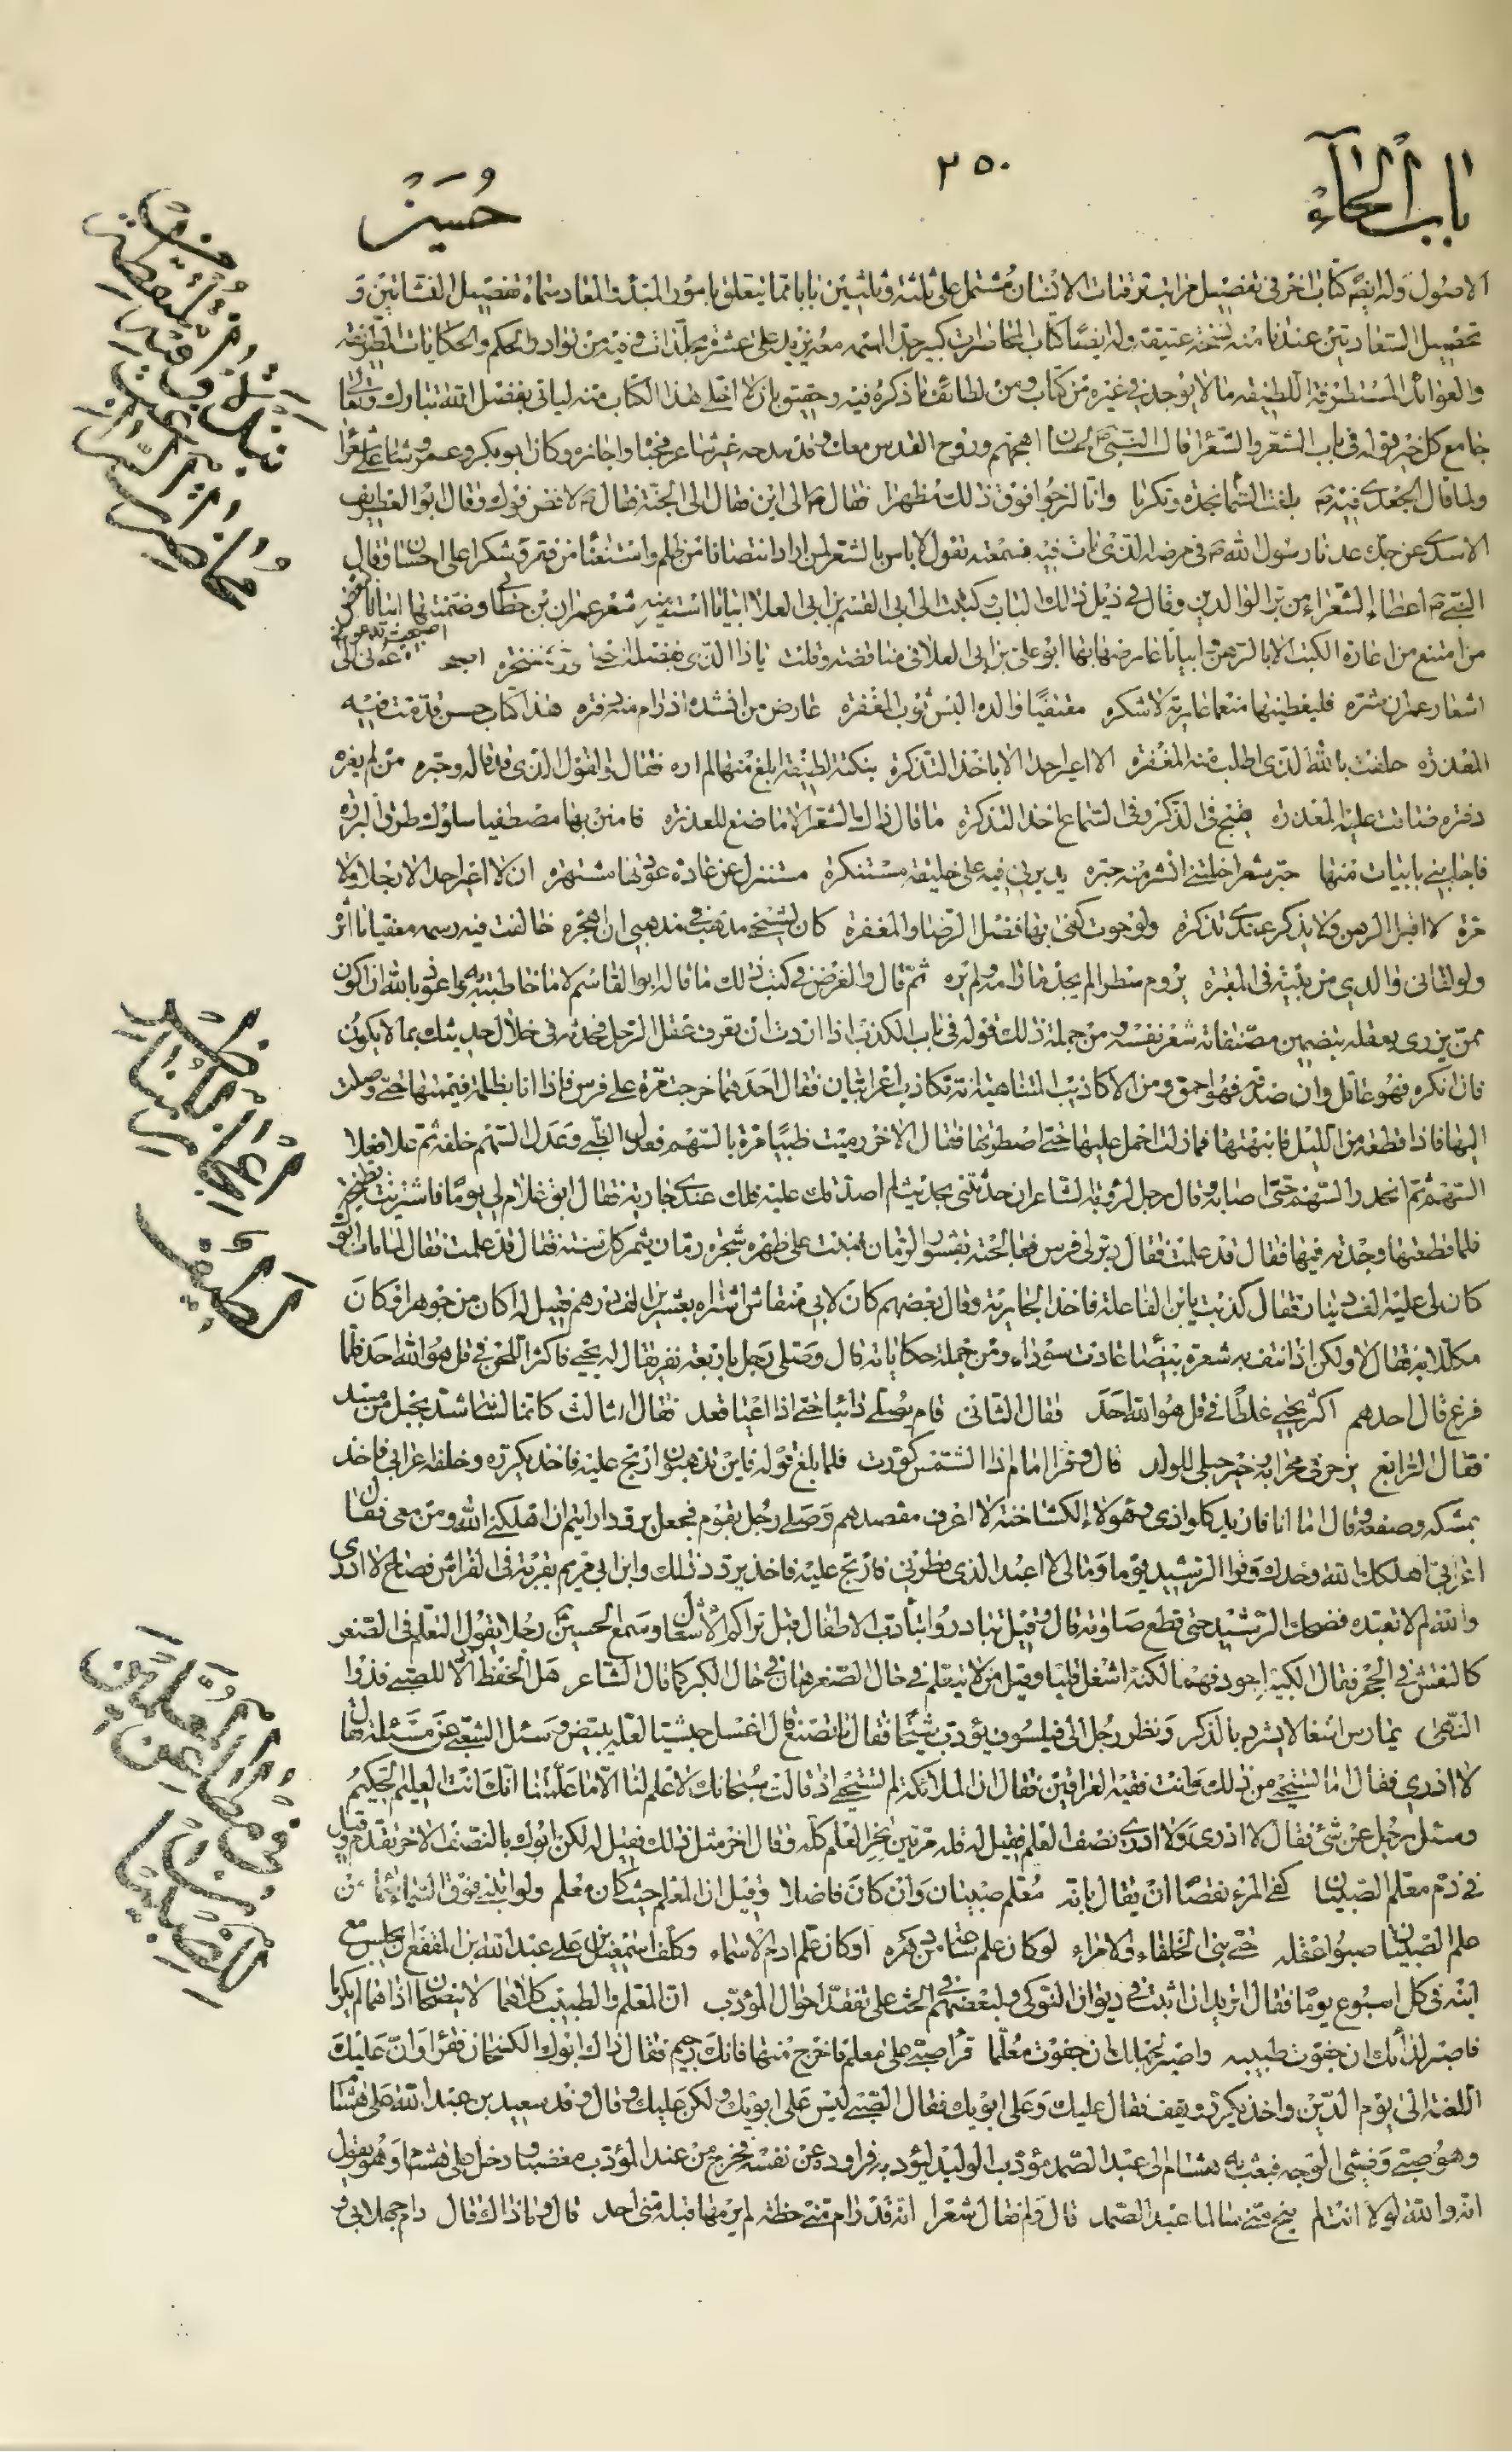 باب الحاء
٢٥٠
حسين
الاصول وله ايضا كتاب اخر فى تفصيل مراتب ترقيات الانسان مشتمل على ثلثة وثلثين بابا مما يتعلق بامور المبدأ والمعاد سماه تفصيل النشاتين و
تحصيل السعادتين عندنا منه نسخة عتيقة وله ايضا كتاب المحاضرات كبير جدا يزيد على عشرة مجلدات وفيه من نوادر الحكم والحكايات الطريفة
والعوائد المستطرفة اللطيفة ما لا يوجد فى غيره من كتاب ومن لطائف ما ذكره فيه وحقيق بان لا اخلى هذا الكتاب منه لياتى بفضل الله تبارك وتعالى
جامع كل خير قوله فى باب الشعر والشعراء قال النبى ص لحسان اهجهم وروح القدس معك وقد مدحه غير شاعر فحباه واجازه وكان ابو بكر وعمر
ولما قال الجعدى فيه ص بلغنا السما مجده وتكرما وانا لنرجو فوق ذلك مظهرا فقال ص الى اين فقال الى الجنة فقال ص لا فض فوك وقال ابو الغطريف
الاسدى عن جدك عدنا رسول الله ص فى مرضه الذى مات فيه فسمعته يقول لا باس بالشعر لمن اراد انتصافا من ظلم واستغناء من فقر وشكرا على احسان وقال
النبى ص اعطاء الشعراء من بر الوالدين وقال فى ذيل ذلك الباب وكتبت الى ابى القسم بن ابى العلا ابياتا استعير منه شعر عمران بن حطان وضمنتها ابياتا لبعض
من امتنع من اعارة الكتب الا بالرهن ابياتا عارضها بها ابو على بن ابى العلا فى مناقضة وقلت يا ذا الذى بفضله
اشعار عمران شره فليعطنيها منعما عارية لاشكره مقتفيا والده البس ثوب المغفرة عارض من انشده اذ رام منه دفتره هذا كتاب حسن قدمت فيه
المعذره حلفت بالله الذى اطلب منه المغفرة الا اعير احدا الا باخذ التذكرة بنكتة لطيفة ابلغ منها لم اره فقال والقول الذى قد قاله وحبره من لم يعره
دفتره ضاقت عليه المعذره يقبح فى الذكر وفى السماع اخذ التذكرة ما قال ذاك الشعر الا ماضغ للعذره فامنن بها مصطفيا سلوك طرق البررة
فاجابنى بابيات منها حبر شعرا خلتنى انشر منه حبره يديرنى فيه على خليقة مستنكرة مستنزل عن عادة عودتها مشتهره ان لا اعير احدا لا رجلا ولا
مرة لا اقبل الرهن ولا يذكر عندى تذكرة ولو حوت كفى بها فضل الرضا والمغفرة كان لشيخى مذهب فى مذهبى ان اهجره خالفت فيه رسمه مقفيا ما اثر
ولو لقانى والدى من بيته فى المقبرة يروم سطرا لم يجد ما رامه ولم يره ثم قال والغرض فى كتب ذلك ما قاله ابو القاسم لا ما خاطبته به واعوذ بالله ان اكون
ممن يزرى بعقله بتضمين مصنفاته شعر نفسه ومن جملة ذلك قوله فى باب الكذب اذا اردت ان تعرف عقل الرجل فحدثه فى خلال حديثك بما لا يكون
فان انكره فهو عاقل وان صدقه فهو احمق ومن الاكاذيب المتناهية انه تكاذب اعرابيان فقال احدهما خرجت مرة على فرس فاذا انا بظلمة فيممتها حتى وصلت
اليها فاذا قطعة من الليل فانبهتها فما زلت احمل عليها حتى اصطدتها فقال الاخر رميت ظبيا مرة بالسهم فعدل الظبى وعدل السهم خلفه ثم علا فعلا
السهم ثم انحدر السهم حتى اصابه وقال رجل لرقبة الشاعر ان حدثتنى بحديث لم اصدقك عليه فلك عندى جارية فقال ابق غلام لى يوما فاشتريت بطيخة
فلما قطعتها وجدته فيها فقال قد علمت فقال دبر لى فرس فعالجته بقشور الرمان فنبت على ظهره شجرة رمان يثمر كل سنة فقال قد علمت فقال لما مات ابوك
كان لى عليه الف دينار فقال كذبت يا ابن الفاعلة فاخذ الجارية وقال بعضهم كان لابى منقاش اشتراه بعشرين الف درهم فقيل له اكان من جوهر او كان
مكللا به فقال لا ولكن اذا نتف به شعرة بيضا عادت سوداء ومن جملة حكاياته قال وصلى رجل باربعة نفر يقال له يحيى فاكثر اللحن فى قل هو الله احد فلما
فرغ قال احدهم اكثر يحيى غلطا فى قل هو الله احد فقال الثانى قام يصلى دائبا حتى اذا اعيا قعد فقال الثالث كانما لسانه شد بحبل من مسد
فقال الرابع يزحر فى محرابه زحير حبلى للولد قال وقرا امام اذا الشمس كورت فلما بلغ قوله فاين تذهبون ارتج عليه فاخذ يكرره وخلفه اعرابى فاخذ
بمشكه وصفعه وقال اما انا فاريد كلواذى وهؤلاء الكشاخنة لا اعرف مقصدهم وصلى رجل بقوم فجعل يردد ارايتم ان اهلكنى الله ومن معى فقال
اعرابى اهلكك الله وحدك وقرا الرشيد يوما ومالى لا اعبد الذى فطرنى فارتج عليه فاخذ يردد ذلك وابن ابى مريم بقربه فى الفراش فصاح لا ادرى
والله لم لا تعبده فضحك الرشيد حتى قطع صلوته قال وقيل تبادروا بتأديب الاطفال قبل تراكم الاشغال وسمع الحسين رجلا يقول التعلم فى الصغر
كالنقش فى الحجر فقال الكبير اجود فهما لكنه اشغل قلبا وقيل من لا يتعلم فى حال الصغر فى حال الكبر كما قال الشاعر هل الحفظ الا للصبى فذو
النهى يمارس اشغالا يشرد بالذكر ونظر رجل الى فيلسوف يؤدب شيخا فقال ما تصنع قال اغسل حبشيا لعله يبيض وسئل الشعبى عن مسئلة فقال
لا ادرى فقال اما تستحى من ذلك وانت فقيه العراقين فقال ان الملائكة لم تستحى اذ قالت سبحانك لا علم لنا الا ما علمتنا انك انت العليم الحكيم
وسئل رجل عن شئ فقال لا ادرى ولا ادرى نصف العلم فقيل له قله مرتين تحز العلم كله وقال اخر مثل ذلك فقيل له لكن ابوك بالنصف الاخر تقدم وقيل
فى ذم معلم الصبيان كفى المرء نقصا ان يقال بانه معلم صبيان وان كان فاضلا وقيل ان المعلم حيث كان معلم ولو ابتنى فوق السماء
علم الصبيان صبوا عقله حتى بنى الخلفاء والامراء لو كان علم او كان علم ادم الاسماء وكلف اسمعيل بن على عبد الله بن المقفع ان يجلس مع
ابنه فى كل اسبوع يوما فقال اتريد ان اثبت فى ديوان النوكى ولبعضهم فى الحث على تفقد احوال المؤدب ان المعلم والطبيب كلاهما لا ينصحان اذا هما لم يكرما
فاصبر لدائك ان جفوت طبيبه واصبر لجهلك ان جفوت معلما قرا صبى على معلم فاخرج منها فانك رجيم فقال ذاك ابوك الكشحان فقرا وان عليك
اللعنة الى يوم الدين واخذ يكرره ويقف فقال عليك وعلى ابويك فقال الصبى ليس على ابويك ولكن عليك وقال وفد سعيد بن عبد الله على هشام
وهو صبى وضئ الوجه فبعث به هشام الى عبد الصمد مؤدب الوليد ليؤدبه فراوده عن نفسه فخرج من عند المؤدب مغضبا ودخل على هشام وهو يقول
انه والله لولا انت لم ينج منى سالما عبد الصمد قال ولم فقال شعرا انه قد رام منى خطة لم يرمها قبله منى احد قال وما ذاك قال رام جهلا بى و